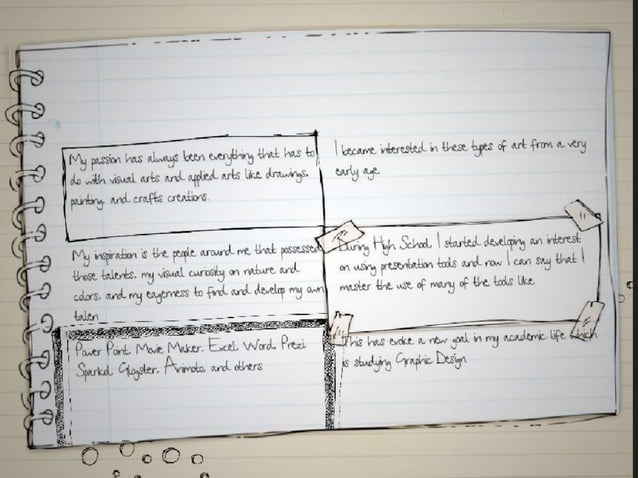 My passion has always been everything that has to
do with visual arts and applied arts like drawings,
painting, and crafts creations.
I became interested in these types of art from a very
early age.
My inspiration is the people around me that possessed
those talents, my visual curiosity on nature and
colors, and my eagerness to find and develop my own
talen
During High School, I started developing an interest
on using presentation tools and now I can say that I
master the use of many of the tools like.
Power Point, Movie Maker, Excel, Word, Prezi,
Sparkol, Glogster, Animoto, and others.
This has evoke a new goal in my academic life which
is studying Graphic Design.